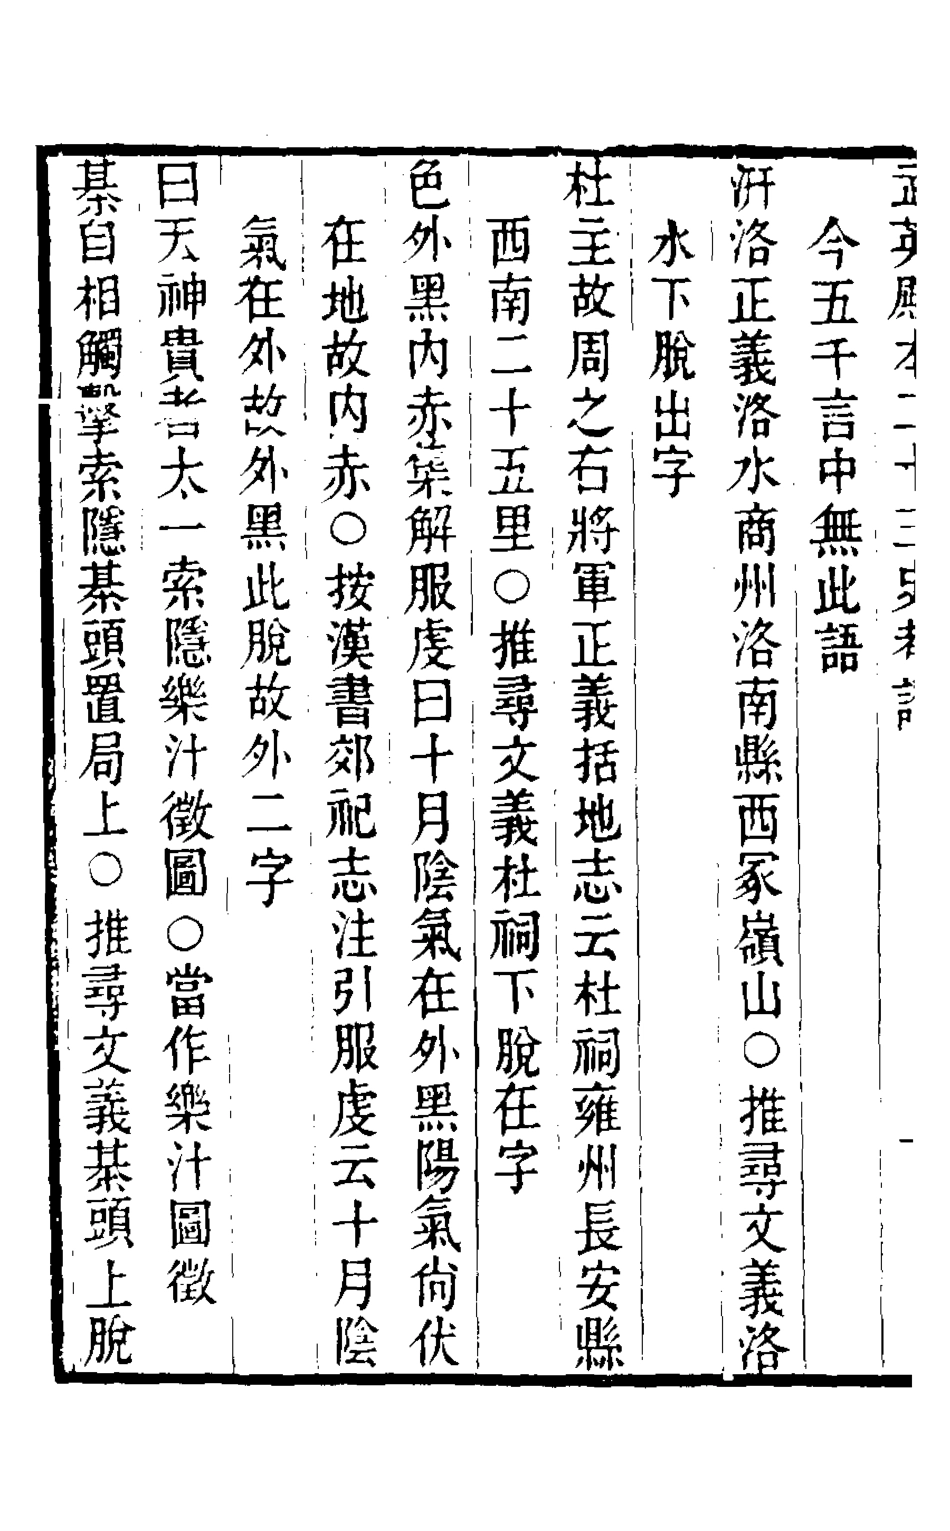 武英殿本二十三史考證
今五千言中無此語
汧洛正義洛水商州洛南縣西冢嶺山○推尋文義洛
水下脫出字
杜主故周之右將軍正義括地志云杜祠雍州長安縣
西南二十五里○推尋文義杜祠下脫在字
色外黑內赤集解服虔曰十月陰氣在外黑陽氣尙伏
在地故內赤○按漢書郊祀志注引服虔云十月陰
氣在外故外黑此脫故外二字
曰天神貴者太一索隱樂汁徵圖○當作樂汁圖徵
棊自相觸擊索隱棊頭置局上○推尋文義棊頭上脫